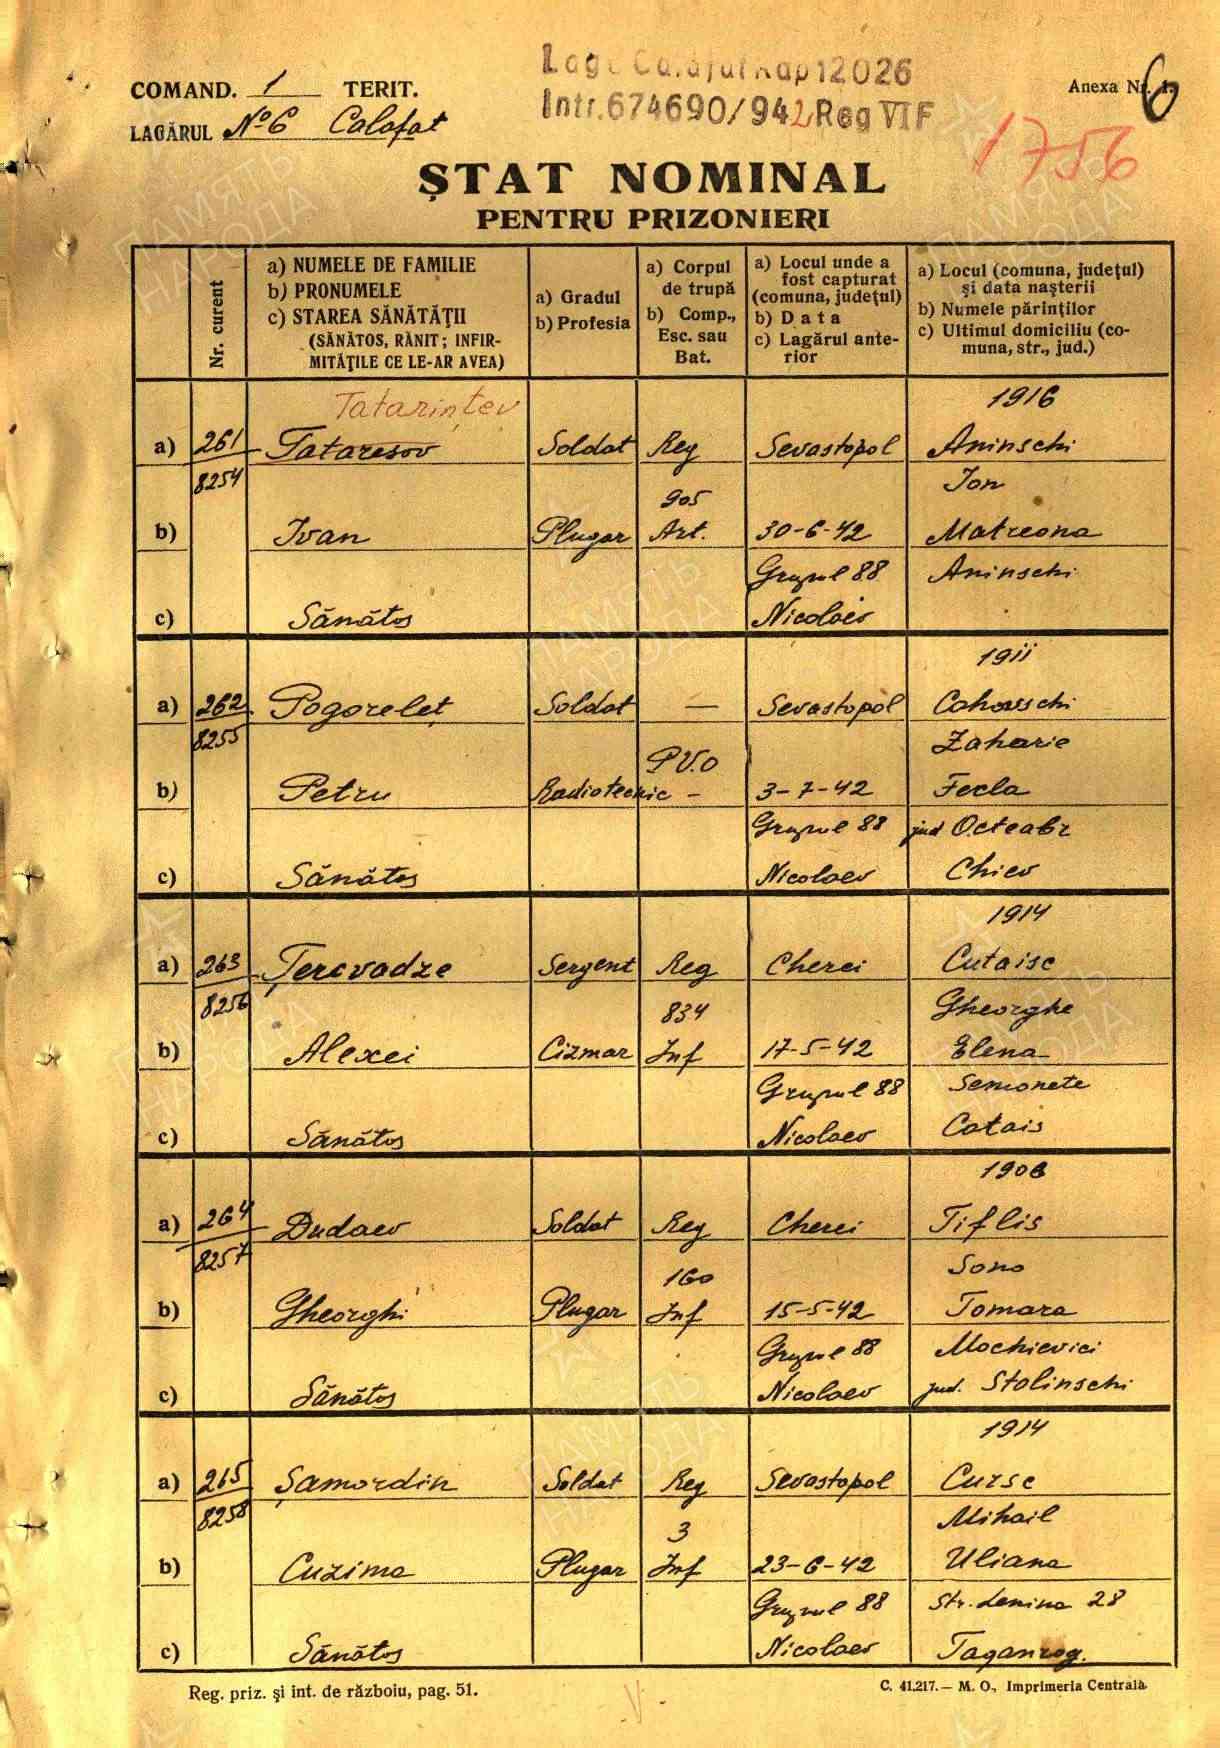 COMAND. 1 TERIT.
LAGĂRUL No 6 Calafat
Lag. Calafat Rap 12026
Intr. 674690/942 Reg VI F
Anexa Nr. 1.
6
1756
ŞTAT NOMINAL
PENTRU PRIZONIERI
Nr. curent
a) NUMELE DE FAMILIE
b) PRONUMELE
c) STAREA SĂNĂTĂŢII
(SĂNĂTOS, RĂNIT; INFIR-
MITĂŢILE CE LE-AR AVEA)
a) Gradul
b) Profesia
a) Corpul
de trupă
b) Comp.,
Esc. sau
Bat.
a) Locul unde a
fost capturat
(comuna, judeţul)
b) Data
c) Lagărul ante-
rior
a) Locul (comuna, judeţul)
şi data naşterii
b) Numele părinţilor
c) Ultimul domiciliu (co-
muna, str., jud.)
Tatarinţev 1916
a) 261 Tataresov Soldat Reg Sevastopol Aninschi
8254 905 Ion
b) Ivan Plugar Art. 30-6-42 Matreona
Grupul 88 Aninschi
c) Sănătos Nicolaev
1911
a) 262 Pogoreleţ Soldat — Sevastopol Cahovschi
8255 P.V.O Zaharie
b) Petru Radiotecnic - 3-7-42 Fecla
Grupul 88 jud Octeabr
c) Sănătos Nicolaev Chiev
1914
a) 263 Ţercvadze Sergent Reg Cherci Cutaisc
8256 834 Gheorghe
b) Alexei Cizmar Inf 17-5-42 Elena
Grupul 88 Semonete
c) Sănătos Nicolaev Catais
1906
a) 264 Dudaev Soldat Reg Cherci Tiflis
8257 160 Sono
b) Gheorghi Plugar Inf 15-5-42 Tomara
Grupul 88 Mochievici
c) Sănătos Nicolaev jud. Stalinschi
1914
a) 265 Şamordin Soldat Reg Sevastopol Cursc
8258 3 Mihail
b) Cuzima Plugar Inf 23-6-42 Uliana
Grupul 88 Str. Lenina 28
c) Sănătos Nicolaev Taganrog.
Reg. priz. şi int. de războiu, pag. 51.
C. 41.217.— M. O., Imprimeria Centrală.
ПАМЯТЬ
НАРОДА